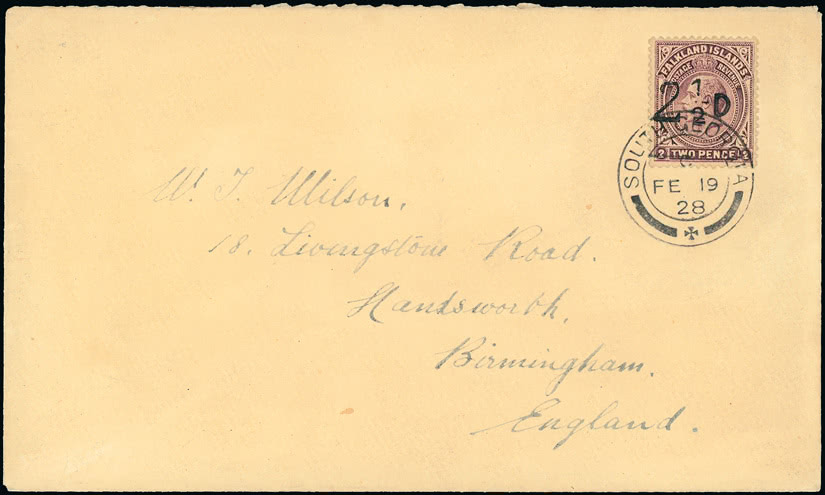 FALKLAND ISLANDS
POSTAGE REVENUE
2½D
2 TWO PENCE 2
SOUTH GEORGIA
FE 19
28
W. T. Wilson,
18. Livingstone Road.
Handsworth,
Birmingham.
England.